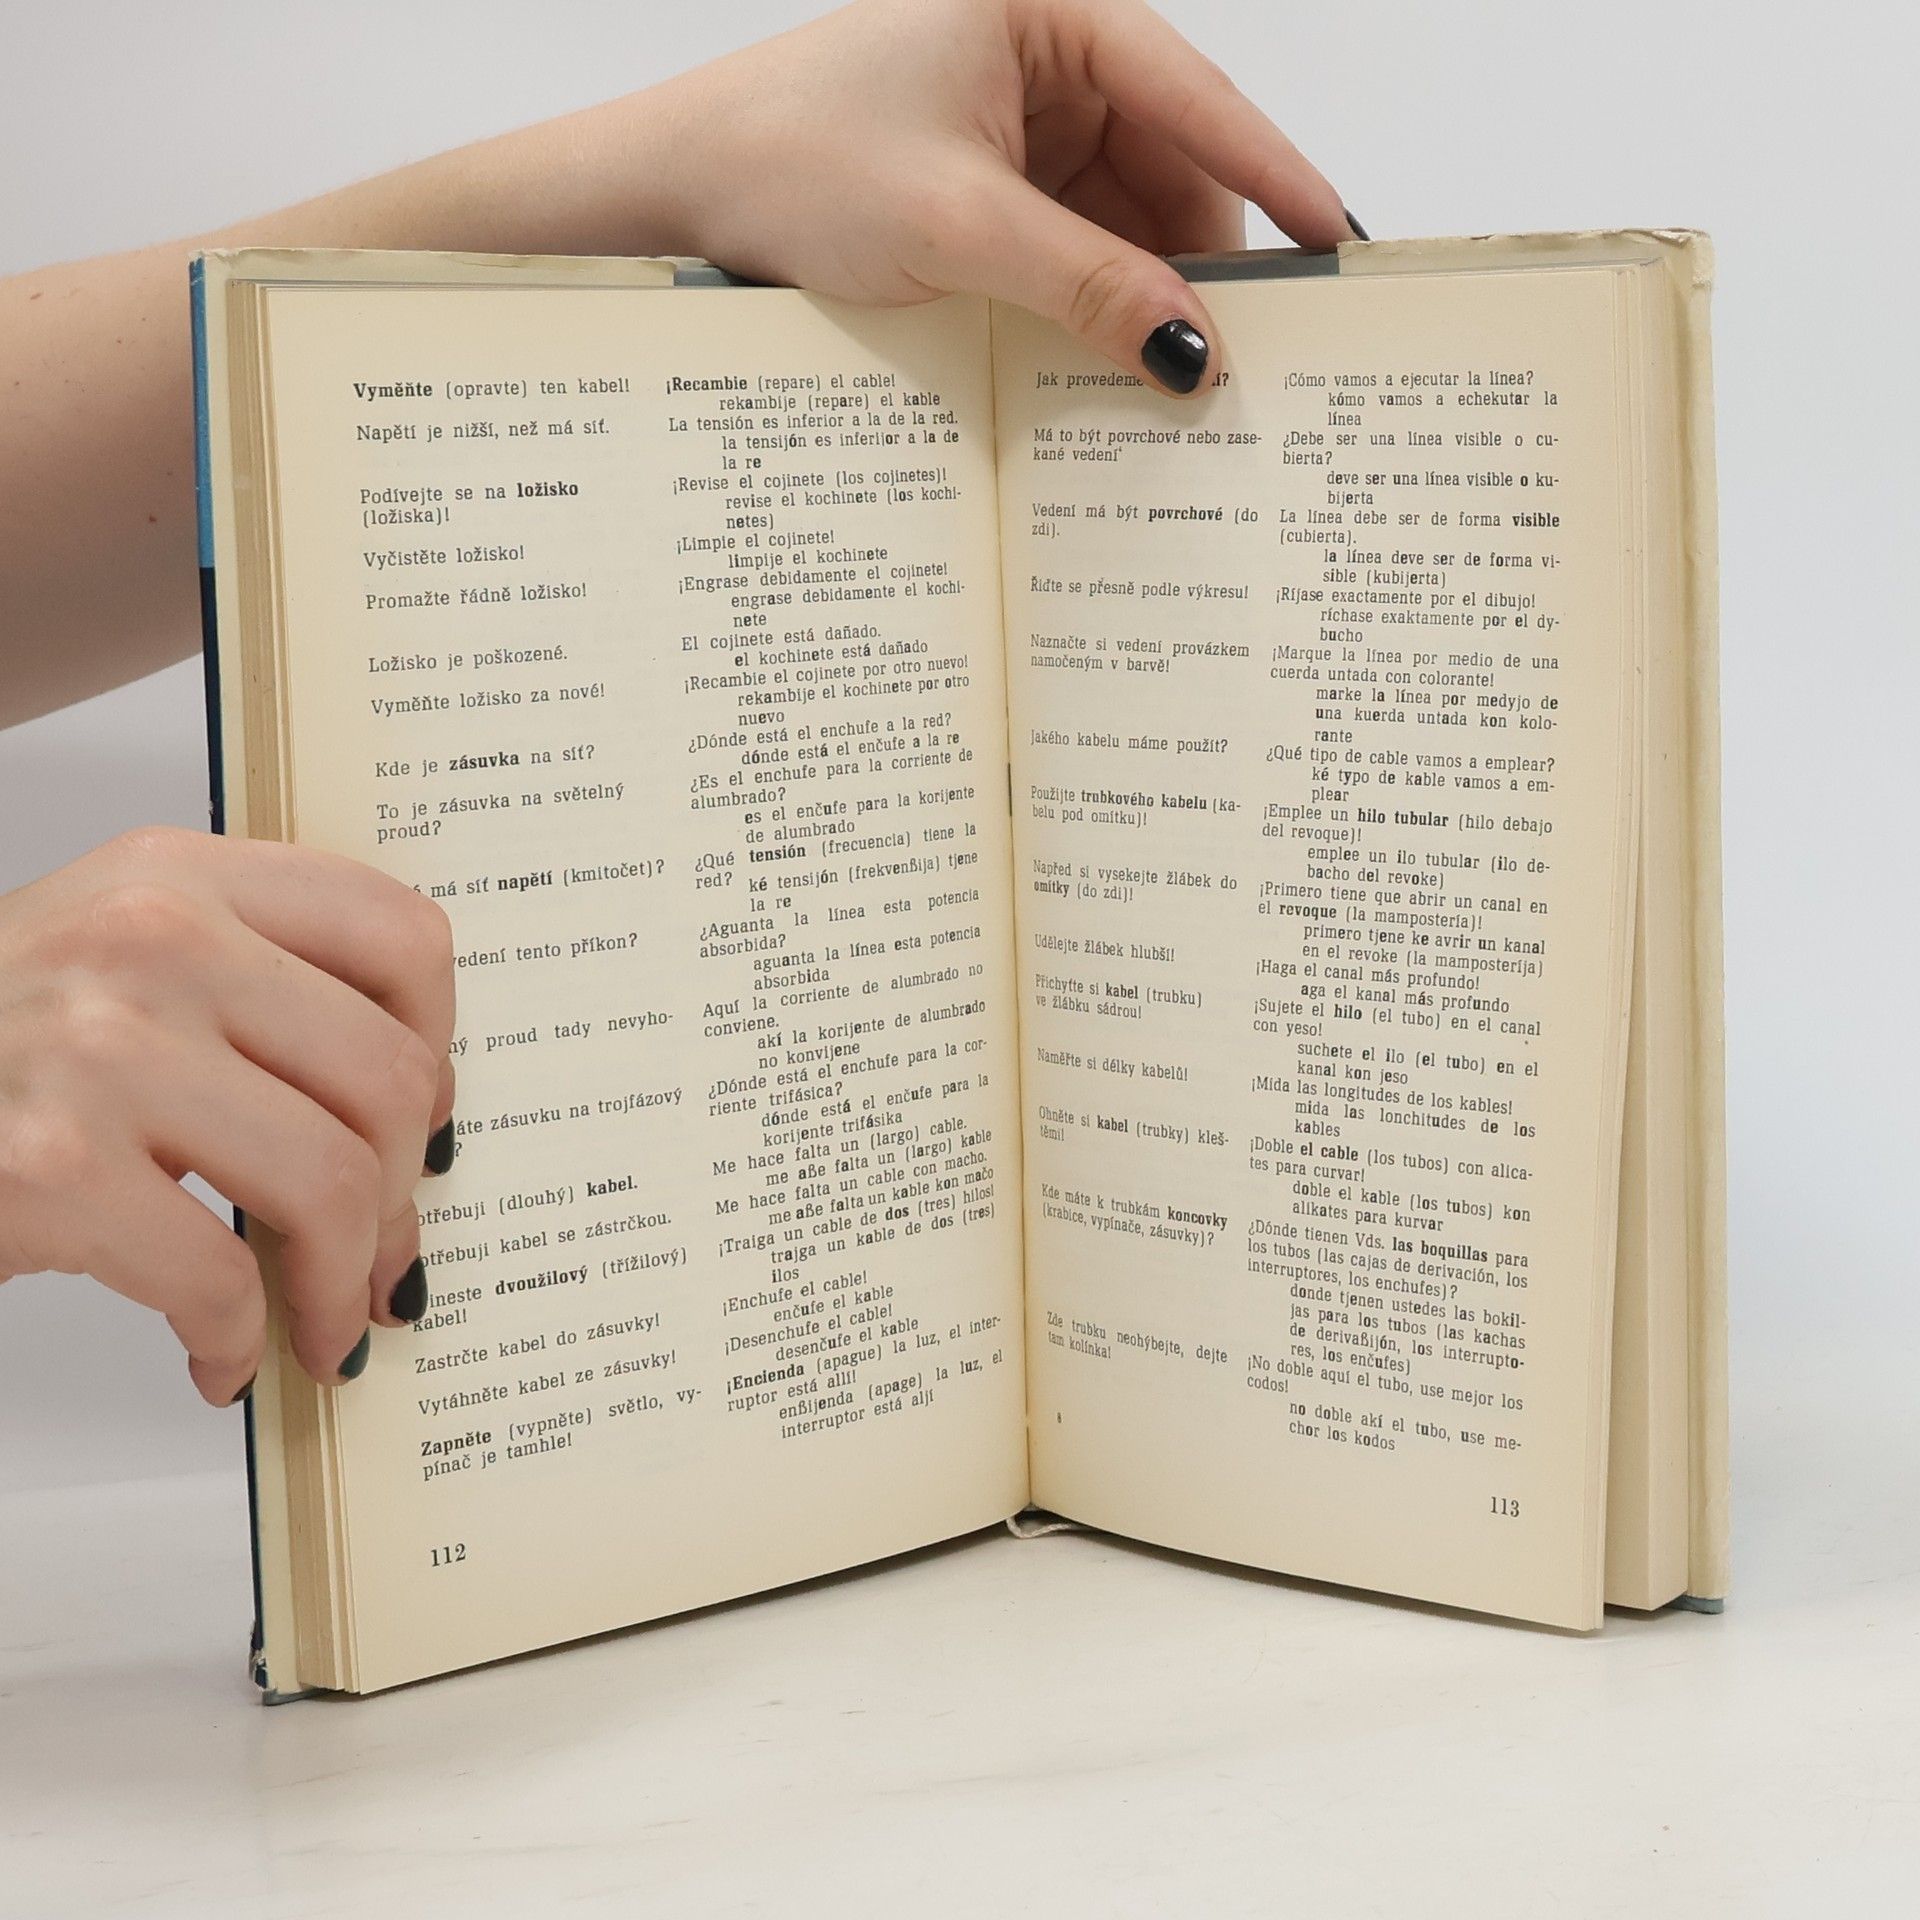 Vyměňte (opravte) ten kabel!
Napětí je nižší, než má síť.
Podívejte se na ložisko
(ložiska)!
Vyčistěte ložisko!
Promažte řádně ložisko!
Ložisko je poškozené.
Vyměňte ložisko za nové!
Kde je zásuvka na síť?
To je zásuvka na světelný
proud?
má síť napětí (kmitočet)?
tento příkon?
proud tady nevyho-
zásuvku na trojfázový
?
(dlouhý) kabel.
kabel se zástrčkou.
dvoužilový (třížilový)
kabel!
Zastrčte kabel do zásuvky!
Vytáhněte kabel ze zásuvky!
Zapněte (vypněte) světlo, vy-
pínač je tamhle!
112
¡Recambie (repare) el cable!
rekambije (repare) el kable
La tensión es inferior a la de la red.
la tensijón es inferijor a la de
la re
¡Revise el cojinete (los cojinetes)!
revise el kochinete (los kochi-
netes)
¡Limpie el cojinete!
limpije el kochinete
¡Engrase debidamente el cojinete!
engrase debidamente el kochi-
nete
El cojinete está dañado.
el kochinete está dañado
¡Recambie el cojinete por otro nuevo!
rekambije el kochinete por otro
nuevo
¿Dónde está el enchufe a la red?
dónde está el enčufe a la re
¿Es el enchufe para la corriente de
alumbrado?
es el enčufe para la korijente
de alumbrado
¿Qué tensión (frecuencia) tiene la
red?
ké tensijón (frekvenßija) tjene
la re
¿Aguanta la línea esta potencia
absorbida?
aguanta la línea esta potencia
absorbida
Aquí la corriente de alumbrado no
conviene.
akí la korijente de alumbrado
no konvijene
¿Dónde está el enchufe para la cor-
riente trifásica?
dónde está el enčufe para la
korijente trifásika
Me hace falta un (largo) cable.
me aße falta un (largo) kable
Me hace falta un cable con macho.
me aße falta un kable kon mačo
¡Traiga un cable de dos (tres) hilos!
trajga un kable de dos (tres)
ilos
¡Enchufe el cable!
enčufe el kable
¡Desenchufe el cable!
desenčufe el kable
¡Encienda (apague) la luz, el inter-
ruptor está allí!
enßijenda (apage) la luz, el
interruptor está aljí
Jak provedeme
Má to být povrchové nebo zase-
kané vedení
Vedení má být povrchové (do
zdi).
Řiďte se přesně podle výkresu!
Naznačte si vedení provázkem
namočeným v barvě!
Jakého kabelu máme použít?
Použijte trubkového kabelu (ka-
belu pod omítku)!
Napřed si vysekejte žlábek do
omítky (do zdi)!
Udělejte žlábek hlubší!
Přichyťte si kabel (trubku)
ve žlábku sádrou!
Naměřte si délky kabelů!
Ohněte si kabel (trubky) kleš-
těmi!
Kde máte k trubkám koncovky
(krabice, vypínače, zásuvky)?
Zde trubku neohýbejte, dejte
tam kolínka!
8
¡Cómo vamos a ejecutar la línea?
kómo vamos a echekutar la
línea
¿Debe ser una línea visible o cu-
bierta?
deve ser una línea visible o ku-
bijerta
La línea debe ser de forma visible
(cubierta).
la línea deve ser de forma vi-
sible (kubijerta)
¡Ríjase exactamente por el dibujo!
ríchase exaktamente por el dy-
bucho
¡Marque la línea por medio de una
cuerda untada con colorante!
marke la línea por medyjo de
una kuerda untada kon kolo-
rante
¿Qué tipo de cable vamos a emplear?
ké typo de kable vamos a em-
plear
¡Emplee un hilo tubular (hilo debajo
del revoque)!
emplee un ilo tubular (ilo de-
bacho del revoke)
¡Primero tiene que abrir un canal en
el revoque (la mampostería)!
primero tjene ke avrir un kanal
en el revoke (la mamposteríja)
¡Haga el canal más profundo!
aga el kanal más profundo
¡Sujete el hilo (el tubo) en el canal
con yeso!
suchete el ilo (el tubo) en el
kanal kon jeso
¡Mida las longitudes de los kables!
mida las lonchitudes de los
kables
¡Doble el cable (los tubos) con alica-
tes para curvar!
doble el kable (los tubos) kon
alikates para kurvar
¿Dónde tienen Vds. las boquillas para
los tubos (las cajas de derivación, los
interruptores, los enchufes)?
donde tjenen ustedes las bokil-
jas para los tubos (las kachas
de derivaßijón, los interrupto-
res, los enčufes)
¡No doble aquí el tubo, use mejor los
codos!
no doble akí el tubo, use me-
chor los kodos
113